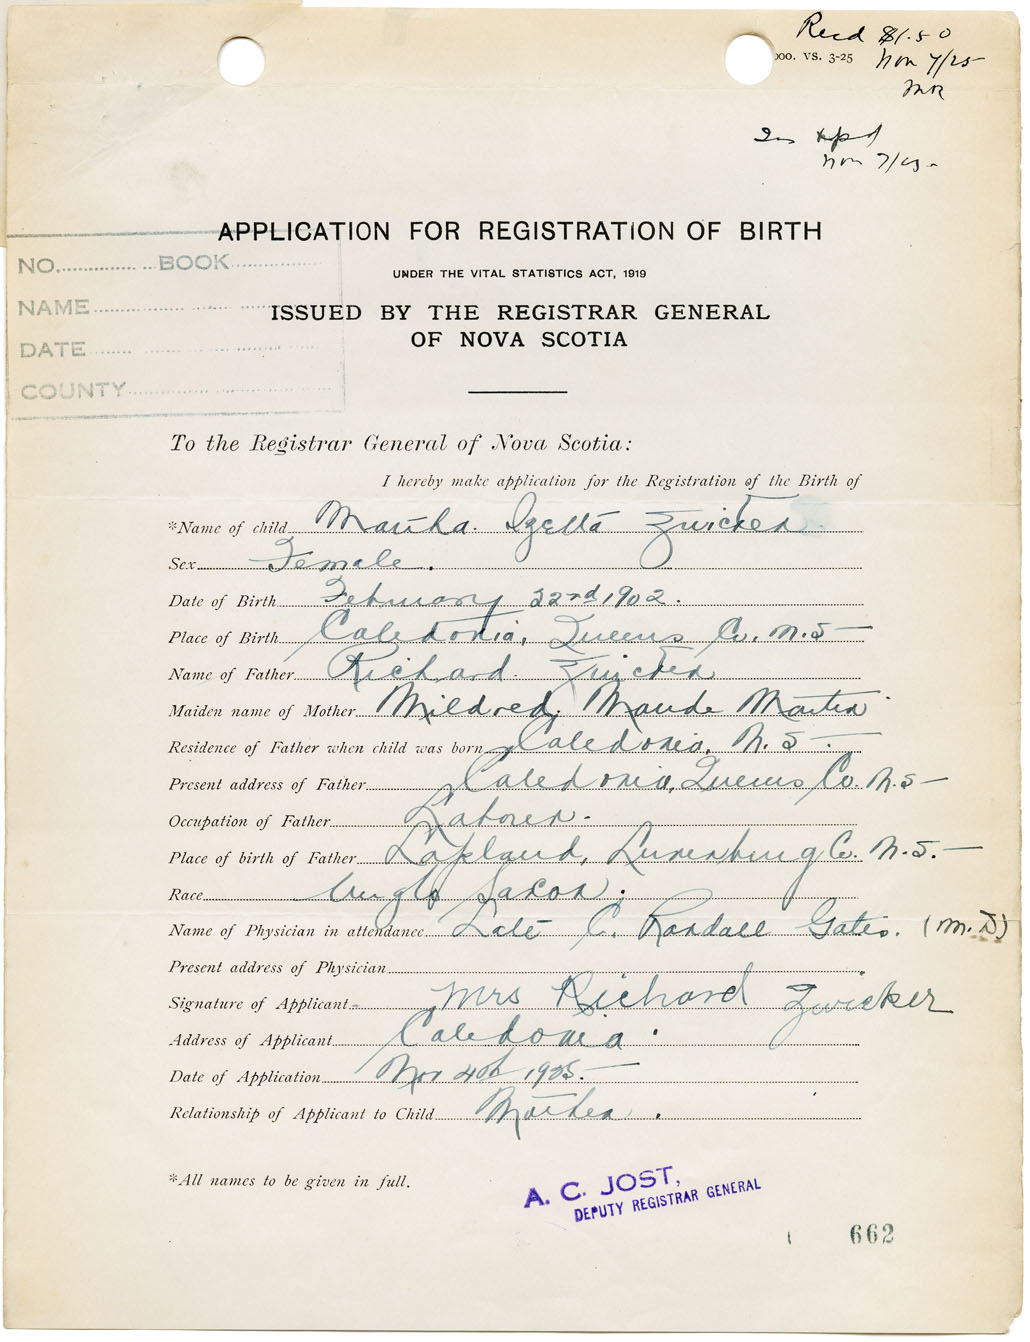 Recd $1.50
000. VS. 3-25 Nov 7/25
MR
Nov 7/25
APPLICATION FOR REGISTRATION OF BIRTH
NO. BOOK
UNDER THE VITAL STATISTICS ACT, 1919
NAME
ISSUED BY THE REGISTRAR GENERAL
OF NOVA SCOTIA
DATE
COUNTY
To the Registrar General of Nova Scotia:
I hereby make application for the Registration of the Birth of
*Name of child Martha Izetta Zwicker
Sex Female.
Date of Birth February 22nd 1902.
Place of Birth Caledonia, Queens Co. N.S
Name of Father Richard Zwicker
Maiden name of Mother Mildred Maude Martin
Residence of Father when child was born Caledonia, N.S
Present address of Father Caledonia, Queens Co. N.S
Occupation of Father Laborer.
Place of birth of Father Lapland, Lunenburg Co. N.S.
Race Anglo Saxon.
Name of Physician in attendance Late C. Randall Gates. (M.D)
Present address of Physician
Signature of Applicant Mrs Richard Zwicker
Address of Applicant Caledonia
Date of Application Nov 4th 1925.
Relationship of Applicant to Child Mother.
*All names to be given in full.
A. C. JOST,
DEPUTY REGISTRAR GENERAL
662